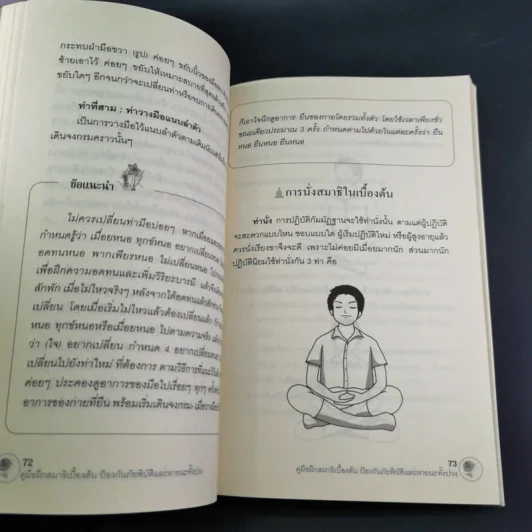 กระทบฝ่ามือขวา (รูป) ค่อยๆ ขยับนิ้วของมือ
ซ้ายเอาไว้ ค่อยๆ ขยับให้เหมาะสมสบายที่สุดแล้ว
ขยับใดๆ อีกจนกว่าจะเปลี่ยนท่าหรือจนการเดิน
ท่าที่สาม : ท่าวางมือแนบลำตัว
เป็นการวางมือไว้แนบลำตัวตามเดิม
เดินจงกรมคราวนั้นๆ
ข้อแนะนำ
ไม่ควรเปลี่ยนท่ามือบ่อยๆ หากเมื่อย
กำหนดรู้ว่า เมื่อยหนอ ทุกข์หนอ อยากเปลี่ยน
อดทนหนอ พากเพียรหนอ ไม่เปลี่ยนหนอ
เพื่อฝึกความอดทนและเพิ่มวิริยะบารมี แล้ว
สักพัก เมื่อไม่ไหวจริงๆ หลังจากได้อดทนแล้ว
เปลี่ยน โดยเมื่อเริ่มไม่ไหวแล้วต้องเปลี่ยนแล้ว
หนอ ทุกข์หนอหรือเมื่อยหนอ ไปตามความจริง แล้ว
ว่า (ใจ) อยากเปลี่ยน กำหนด 4 อยากเปลี่ยนหนอ
เปลี่ยนไปยังท่าใหม่ ที่ต้องการ ตามวิธีการที่แนะ
ค่อยๆ ประคองดูอาการของมือไปเรื่อยๆ ทุกๆ ครั้ง
อาการของกายที่ยืน พร้อมเริ่มเดินจงกรม
72
คู่มือฝึกสมาธิเบื้องต้น ป้องกันภัยพิบัติและหายนะทั้งปวง
กับเอาใจนึกดูอาการ ยืนของกายโดยรวมทั้งตัว โดยใช้เวลาเพียงชั่ว
ขณะเดียวประมาณ 3 ครั้ง กำหนดตามไปด้วยในแต่ละครั้งว่า ยืน
หนอ ยืนหนอ ยืนหนอ
การนั่งสมาธิในเบื้องต้น
ท่านั่ง การปฏิบัติกัมมัฏฐานจะใช้ท่านั่งนั้น ตามแต่ผู้ปฏิบัติ
จะสะดวกแบบไหน ชอบแบบใด ผู้เริ่มปฏิบัติใหม่ หรือผู้สูงอายุแล้ว
ควรนั่งเรียงขาจึงจะดี เพราะไม่ค่อยมีเมื่อยมากนัก ส่วนมากนัก
ปฏิบัตินิยมใช้ท่านั่งกัน 3 ท่า คือ
73
คู่มือฝึกสมาธิเบื้องต้น ป้องกันภัยพิบัติและหายนะทั้งปวง